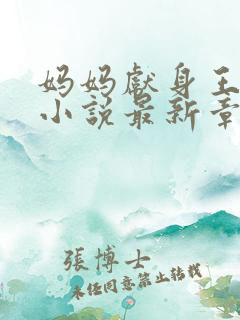 妈妈献身王
小说最新章
張博士
未经同意禁止转载